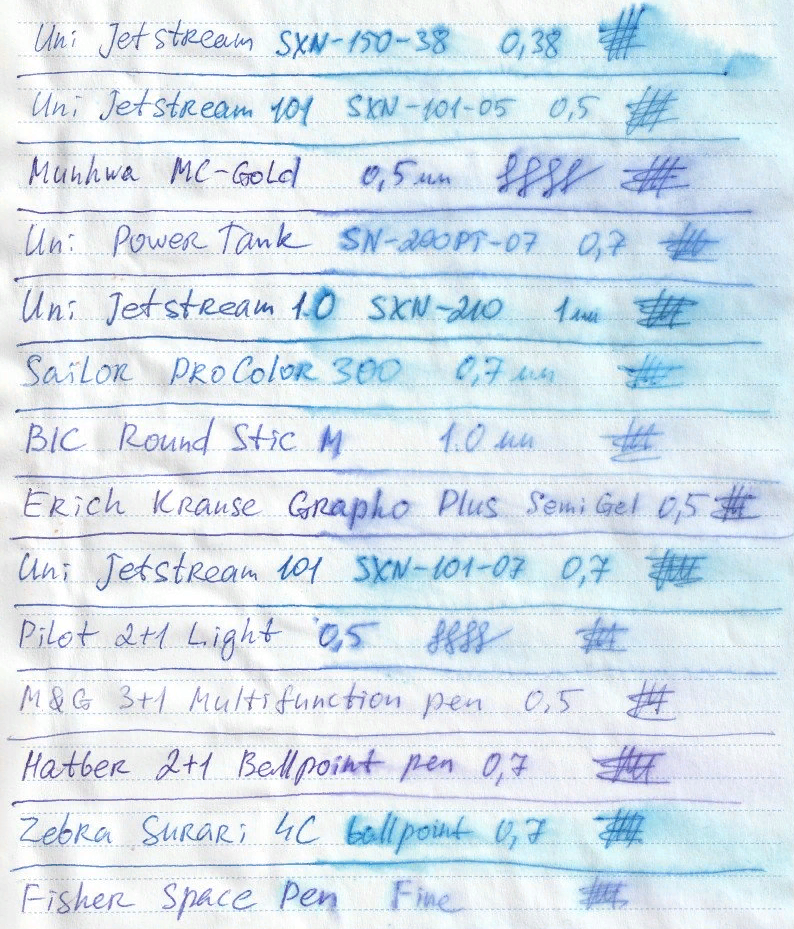 Uni Jetstream SXN-150-38 0,38
Uni Jetstream 101 SXN-101-05 0,5
Munhwa MC-Gold 0,5 мм
Uni Power Tank SN-200PT-07 0,7
Uni Jetstream 1.0 SXN-210 1 мм
Sailor ProColor 300 0,7 мм
BIC Round Stic M 1.0 мм
Erich Krause Grapho Plus Semi Gel 0,5
Uni Jetstream 101 SXN-101-07 0,7
Pilot 2+1 Light 0,5
M&G 3+1 Multifunction pen 0,5
Hatber 2+1 Ballpoint pen 0,7
Zebra Surari 4C ballpoint 0,7
Fisher Space Pen Fine